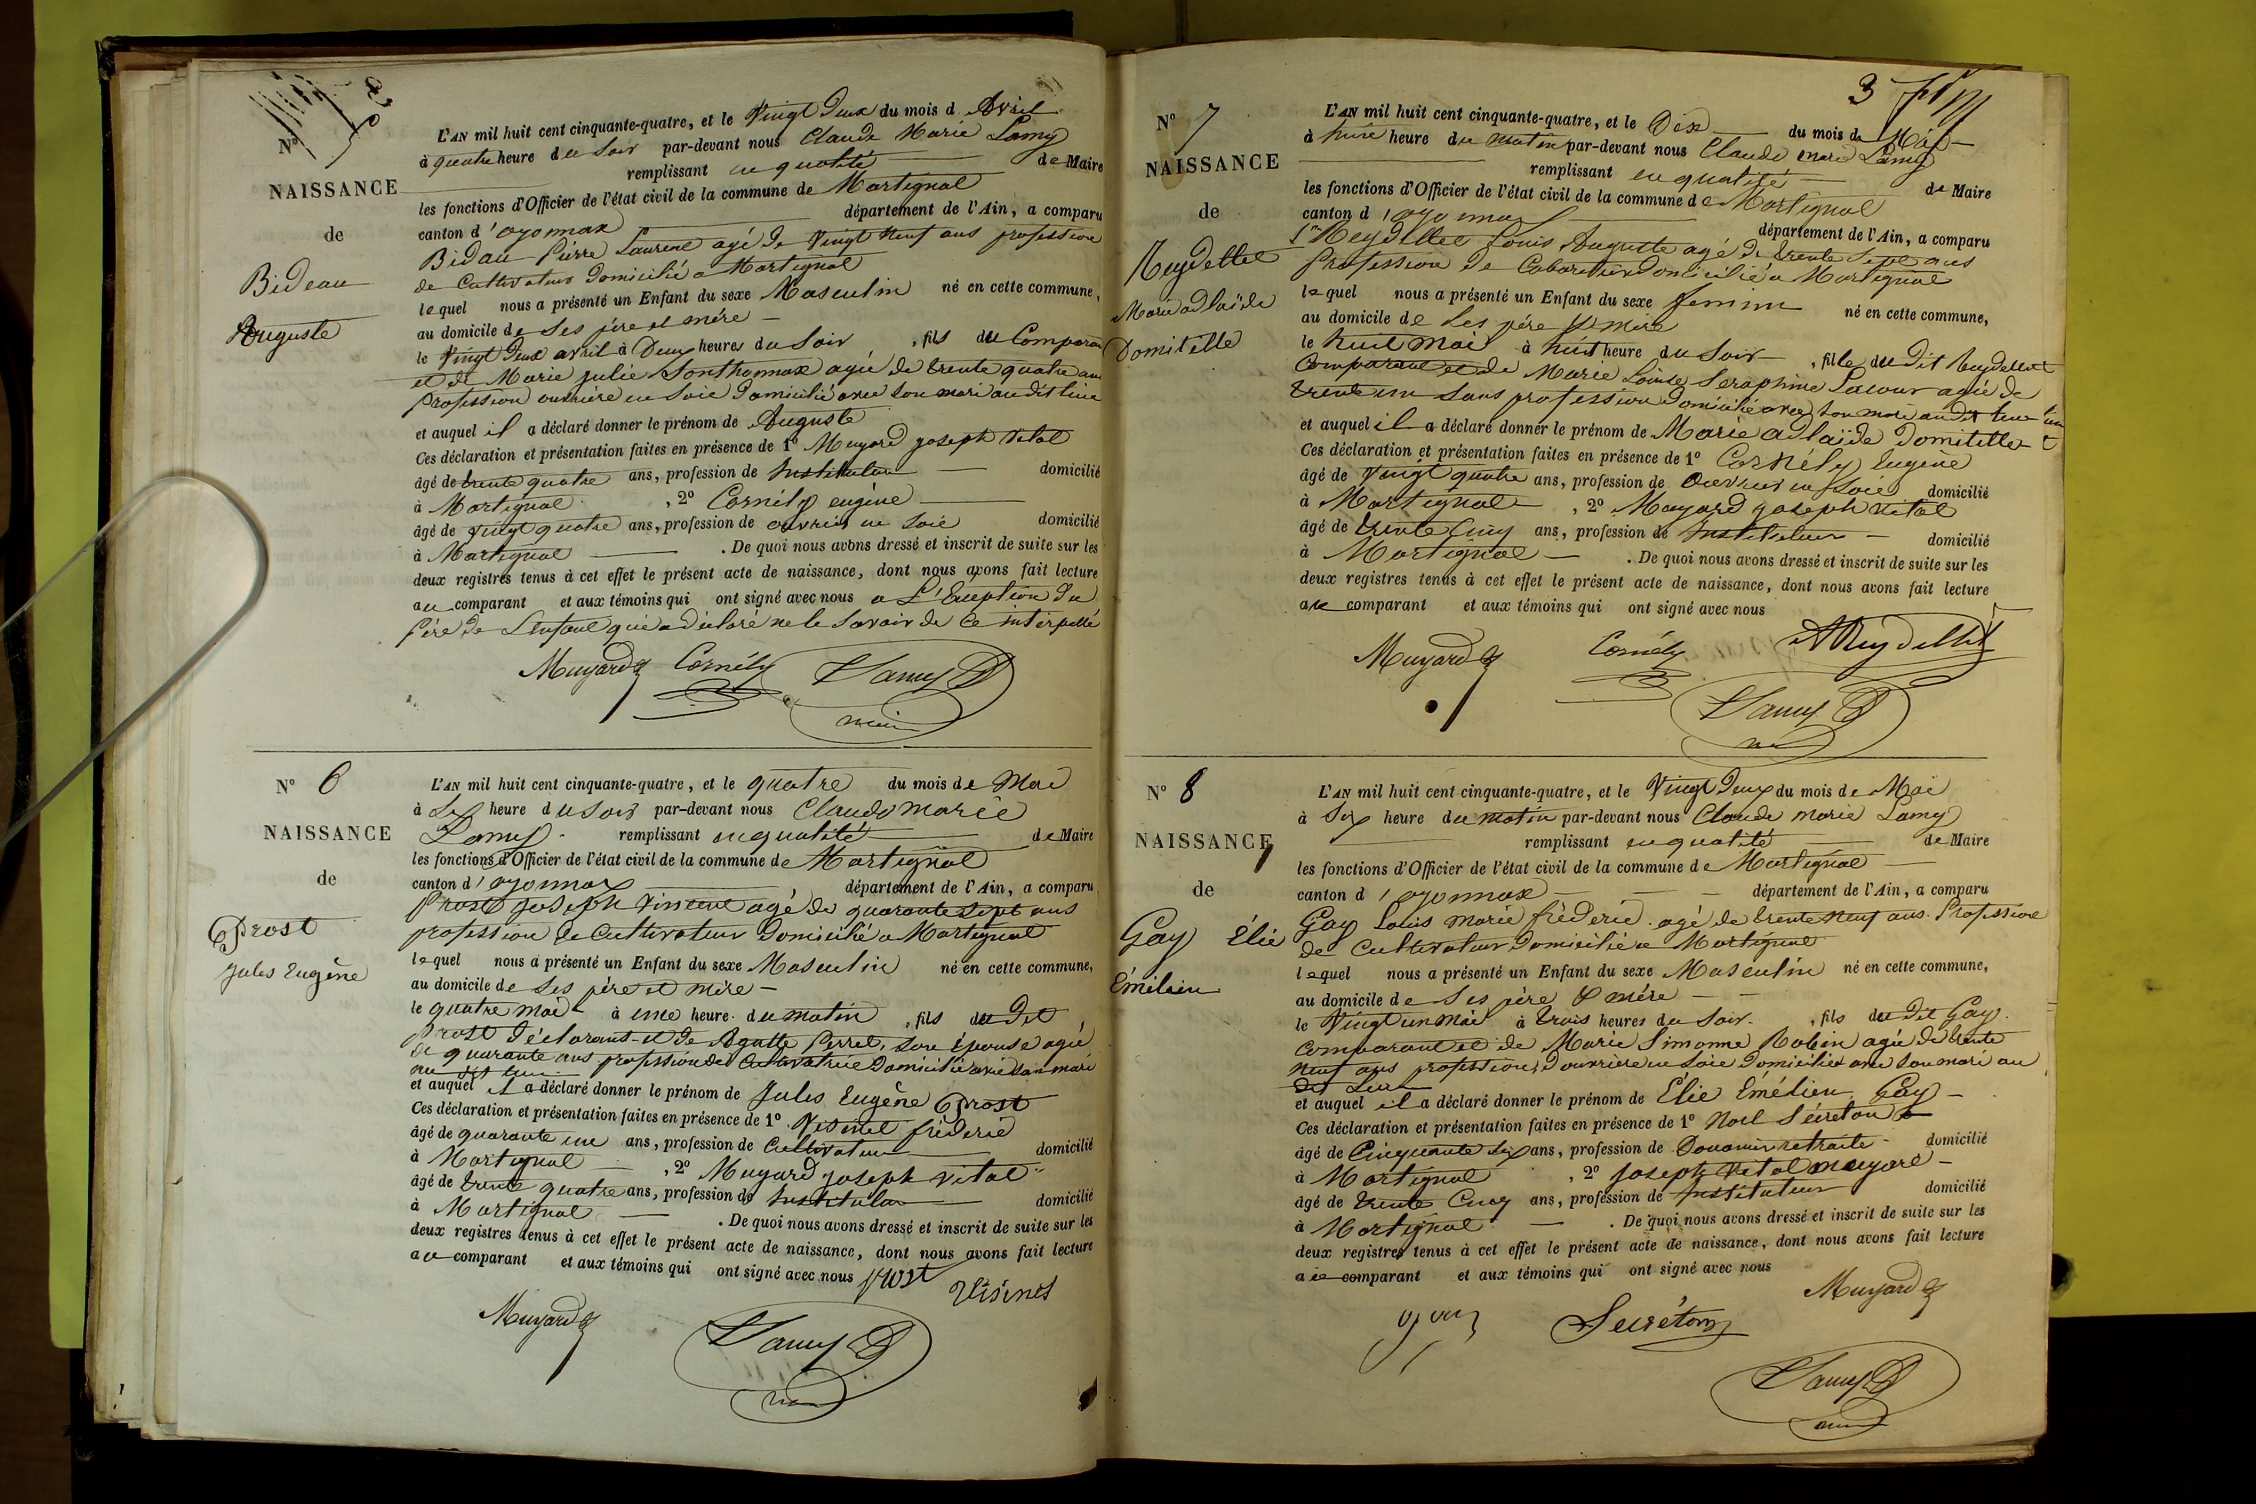 Nº 5
NAISSANCE
de
Bideau
Auguste
L'AN mil huit cent cinquante-quatre, et le Vingt Deux du mois d Avril
à quatre heure du Soir par-devant nous Claude Marie Lamy
remplissant en qualité de Maire
les fonctions d'Officier de l'état civil de la commune de Martignat
canton d'oyonnax département de l'Ain, a comparu
Bidau Pierre Laurent agé de Vingt Neuf ans profession
de Cultivateur Domicilié a Martignat
lequel nous a présenté un Enfant du sexe Masculin né en cette commune,
au domicile de Ses père et mère
le Vingt Deux avril à Deux heures du Soir , fils du Comparant
et de Marie julie Sonthonnax agée de trente quatre ans
profession ouvrière en Soie Domiciliée avec son mari au dit lieu
et auquel il a déclaré donner le prénom de Auguste
Ces déclaration et présentation faites en présence de 1º Muyard joseph Vital
âgé de trente quatre ans, profession de Instituteur domicilié
à Martignat , 2º Cornély eugène
âgé de vingt quatre ans, profession de ouvrier en Soie domicilié
à Martignat . De quoi nous avons dressé et inscrit de suite sur les
deux registres tenus à cet effet le présent acte de naissance, dont nous avons fait lecture
au comparant et aux témoins qui ont signé avec nous a L'Exeption du
Père de L'enfant qui a déclaré ne le Savoir de Ce interpellé
Muyard Cornély Lamy
maire
Nº 6
NAISSANCE
de
Prost
Jules Eugène
L'AN mil huit cent cinquante-quatre, et le quatre du mois de Mai
à Six heure du Soir par-devant nous Claude Marie
Lamy remplissant en qualité de Maire
les fonctions d'Officier de l'état civil de la commune de Martignat
canton d'oyonnax département de l'Ain, a comparu
Prost Joseph Vincent agé de quarante Sept ans
profession de Cultivateur Domicilié a Martignat
lequel nous a présenté un Enfant du sexe Masculin né en cette commune,
au domicile de Ses père et mère
le quatre mai à une heure du matin , fils du Dit
Prost Déclarant et de Agatte Perret, Son épouse agée
de quarante ans profession de Cultivatrice Domiciliée avec Son mari
au dit lieu
et auquel il a déclaré donner le prénom de Jules Eugène Prost
Ces déclaration et présentation faites en présence de 1º Visinet fréderic
âgé de quarante un ans, profession de Cultivateur domicilié
à Martignat , 2º Muyard joseph Vital
âgé de trente quatre ans, profession de Instituteur domicilié
à Martignat . De quoi nous avons dressé et inscrit de suite sur les
deux registres tenus à cet effet le présent acte de naissance, dont nous avons fait lecture
au comparant et aux témoins qui ont signé avec nous Prost
Visinet
Muyard Lamy
3
Nº 7
NAISSANCE
de
Reydellet
Marie adlaïde
Domitille
L'AN mil huit cent cinquante-quatre, et le Dix du mois de Mai
à huit heure du matin par-devant nous Claude marie Lamy
remplissant en qualité de Maire
les fonctions d'Officier de l'état civil de la commune de Martignat
canton d'oyonnax département de l'Ain, a comparu
Reydellet Louis Auguste agé de trente Sept ans
Profession de Cabaretier Domicilié a Martignat
lequel nous a présenté un Enfant du sexe feminin né en cette commune,
au domicile de Ses père & mère
le huit Mai à huit heure du Soir , fille du Dit Reydellet
Comparant et de Marie Louise Seraphine Lacour agée de
trente un Sans profession Domiciliée avec Son mari au dit lieu
et auquel il a déclaré donner le prénom de Marie adlaïde Domitille
Ces déclaration et présentation faites en présence de 1º Cornély Eugène
âgé de Vingt quatre ans, profession de Ouvrier en Soie domicilié
à Martignat , 2º Muyard joseph Vital
âgé de trente Cinq ans, profession de Instituteur domicilié
à Martignat . De quoi nous avons dressé et inscrit de suite sur les
deux registres tenus à cet effet le présent acte de naissance, dont nous avons fait lecture
au comparant et aux témoins qui ont signé avec nous
Muyard Cornély A Reydellet
Lamy
Nº 8
NAISSANCE
de
Gay Élie
Émélien
L'AN mil huit cent cinquante-quatre, et le Vingt Deux du mois de Mai
à Six heure du matin par-devant nous Claude marie Lamy
remplissant en qualité de Maire
les fonctions d'Officier de l'état civil de la commune de Martignat
canton d'oyonnax département de l'Ain, a comparu
Gay Louis Marie fréderic agé de trente neuf ans Profession
de Cultivateur Domicilié a Martignat
lequel nous a présenté un Enfant du sexe Masculin né en cette commune,
au domicile de Ses père & mère
le Vingt un Mai à trois heures du Soir , fils du Dit Gay
Comparant et de Marie Simonne Robin agée de trente
neuf ans profession d'ouvrière en Soie Domiciliée avec Son mari au
dit Lieu
et auquel il a déclaré donner le prénom de Élie Émélien Gay
Ces déclaration et présentation faites en présence de 1º Noel Sécretan
âgé de Cinquante Six ans, profession de Douanier retraité domicilié
à Martignat , 2º Joseph Vital muyard
âgé de trente Cinq ans, profession de Instituteur domicilié
à Martignat . De quoi nous avons dressé et inscrit de suite sur les
deux registres tenus à cet effet le présent acte de naissance, dont nous avons fait lecture
au comparant et aux témoins qui ont signé avec nous
Muyard
Secrétan
Lamy